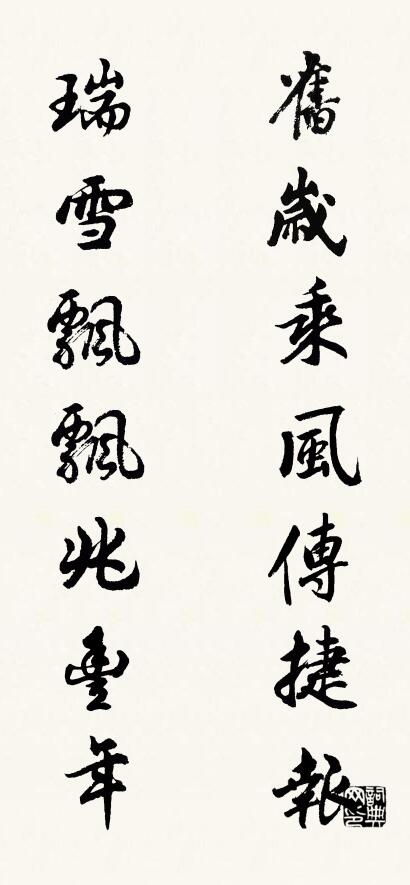 舊歲乘風傳捷報
瑞雪飄飄兆豐年
詞典网印